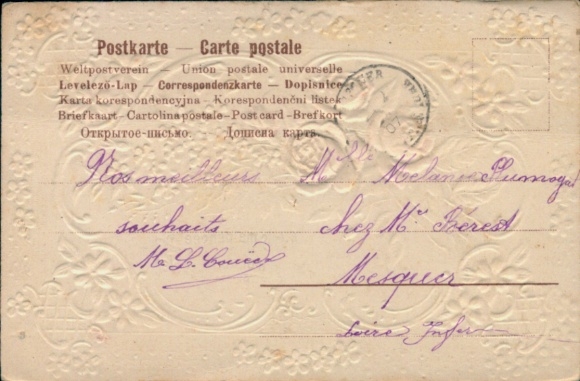 Postkarte — Carte postale
Weltpostverein — Union postale universelle
Levelező-Lap — Correspondenzkarte — Dopisnice
Karta korespondencyjna - Korespondenční listek
Briefkaart - Cartolina postale - Post card - Brefkort
Открытое-письмо. Дописна карта.
Nos meilleurs
souhaits
M L
Mlle Melanie
chez Mr Forest
Mesquer
Loire Infer